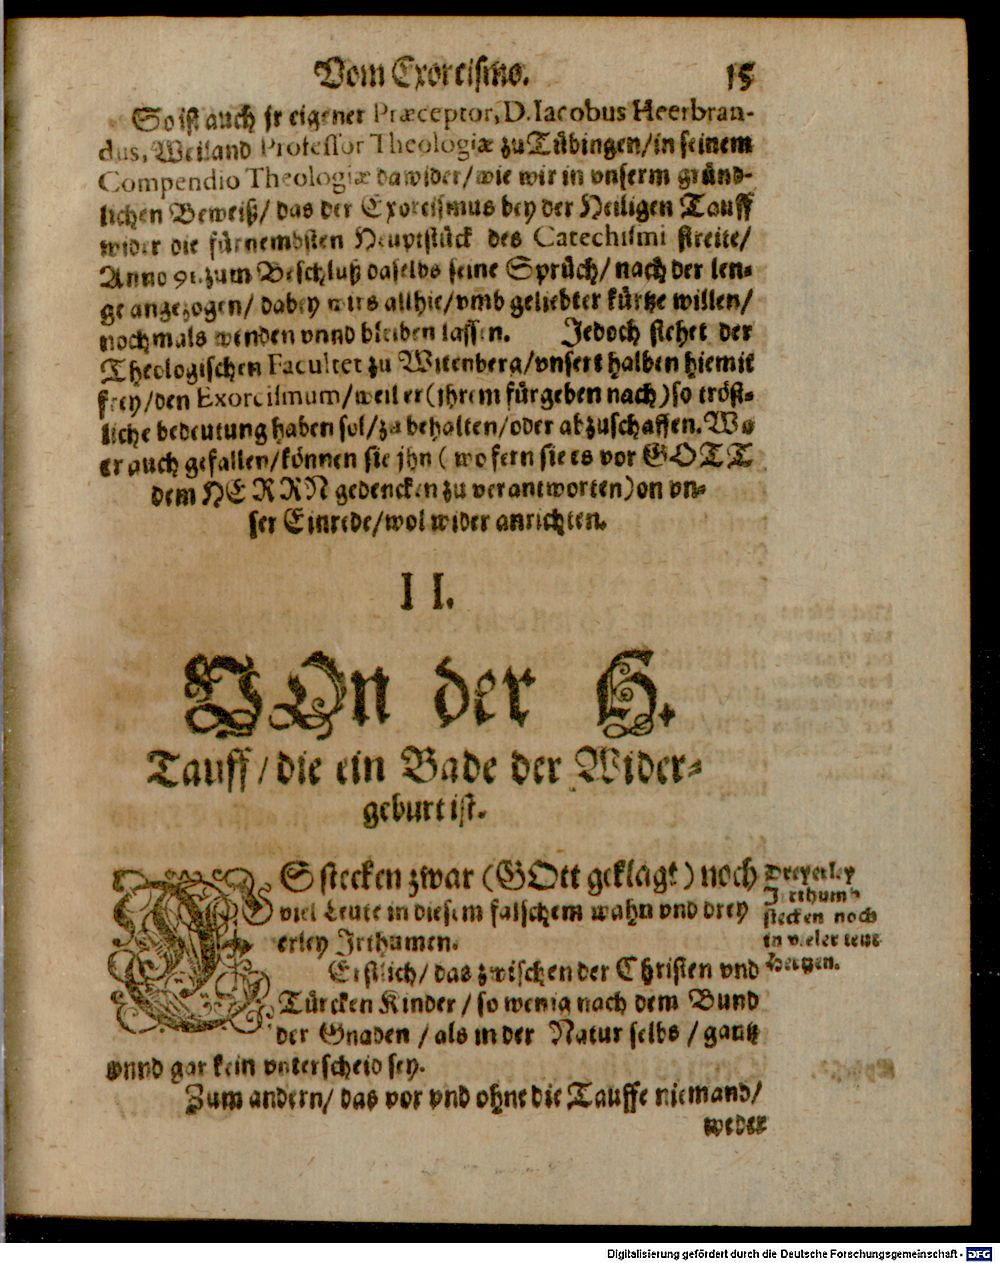 Vom Exorcismo. 15
So ist auch jr eigener Præceptor, D. Iacobus Heerbran-
dus, Weiland Professor Theologiæ zu Tübingen/ in seinem
Compendio Theologiæ dawider/ wie wir in vnserm gründ-
lichen Beweiß/ das der Exorcismus bey der Heiligen Tauff
wider die fürnembsten Heuptstück des Catechismi streite/
Anno 91. zum Beschluß daselbs seine Sprüch/ nach der len-
ge angezogen/ dabey wirs allhie/ vmb geliebter kürtze willen/
nochmals wenden vnnd bleiben lassen. Jedoch stehet der
Theologischen Facultet zu Witenberg/ vnsert halben hiemit
frey/ den Exorcismum/ weil er (ihrem fürgeben nach) so tröst-
liche bedeutung haben sol/ zu behalten/ oder abzuschaffen. Wo
er auch gefallen/ können sie jhn (wo fern sie es vor GOTT
dem HERRN gedencken zu verantworten) on vn-
ser Einrede/ wol wider anrichten.
II.
VOn der H.
Tauff/ die ein Bade der Wider-
geburt ist.
ES stecken zwar (GOtt geklagt) noch
viel Leute in diesem falschem wahn vnd drey
erley Irthumen.
Erstlich/ das zwischen der Christen vnd
Türcken Kinder/ so wenig nach dem Bund
der Gnaden/ als in der Natur selbs/ gantz
vnnd gar kein vnterscheid sey.
Zum andern/ das vor vnd ohne die Tauffe niemand/
weder
Dreyerley
Irthumb
stecken noch
in vieler leut
Hertzen.
Digitalisierung gefördert durch die Deutsche Forschungsgemeinschaft - DFG